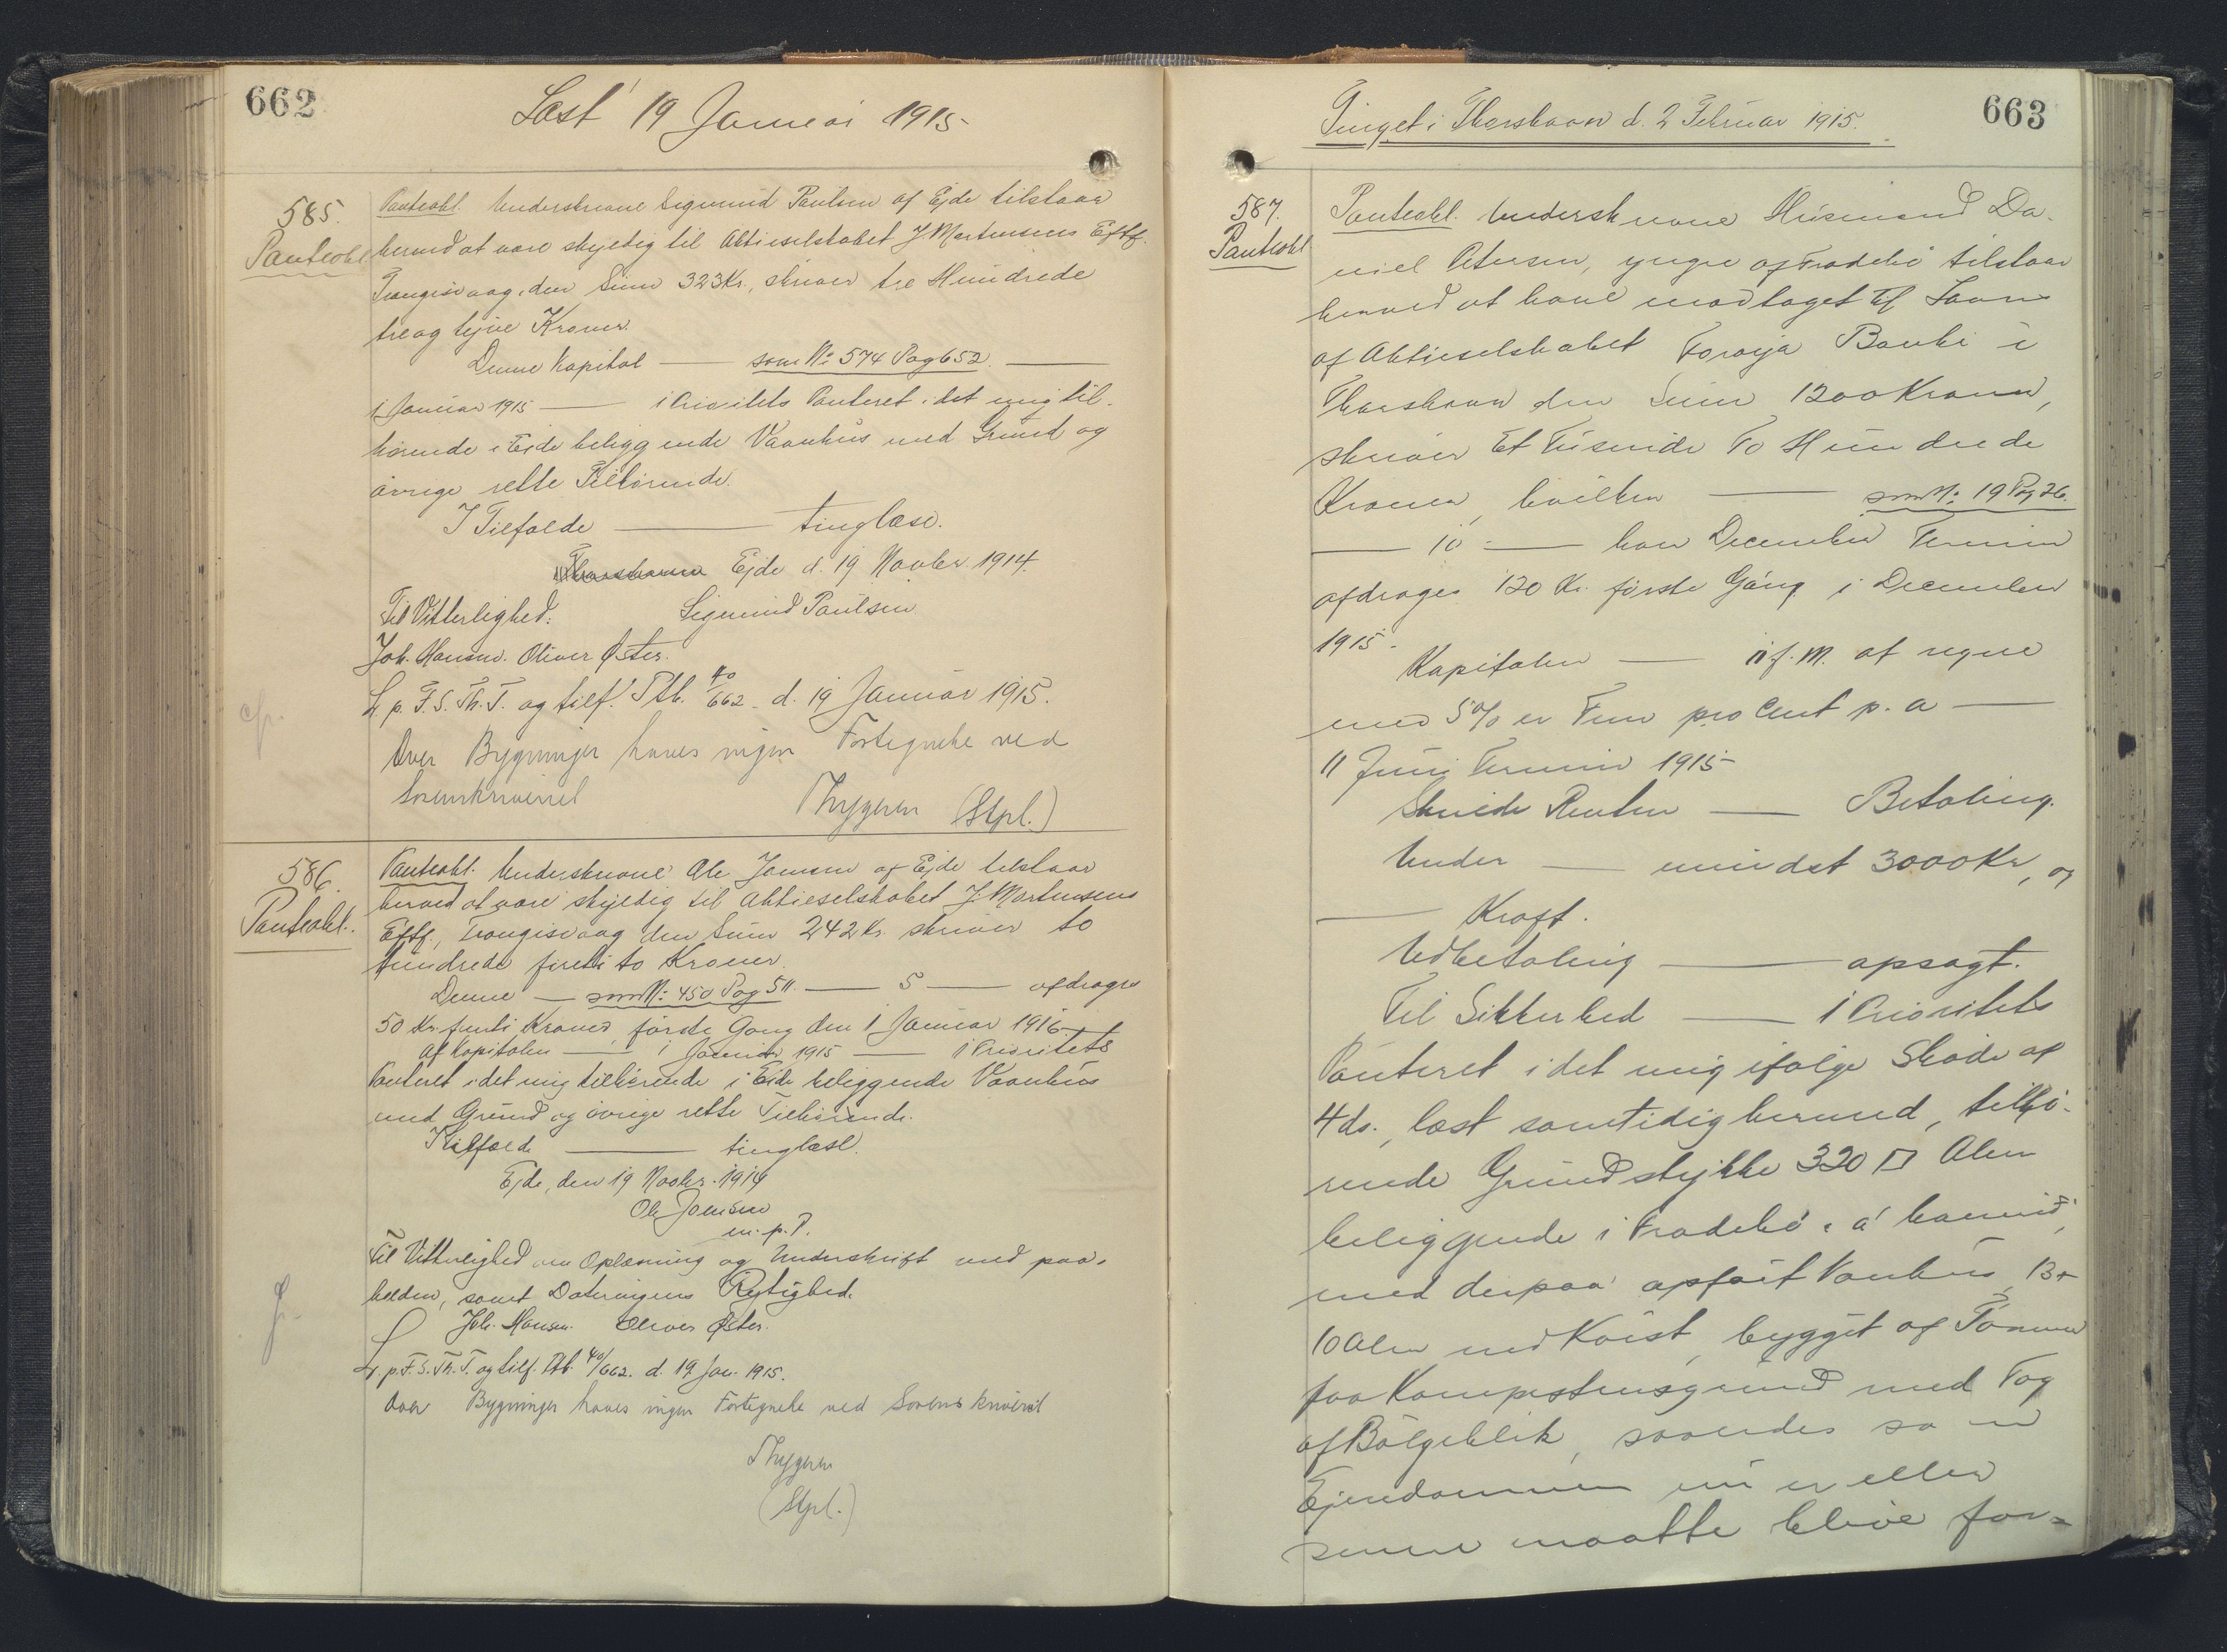 662
Læst 19 Januar 1915
585.
Panteobl.
Panteobl. Underskrevne Sigmund Paulsen af Ejde tilstaar
herved at være skyldig til Aktieselskabet J. Mortensens Eftf.
Trangisvaag, den Sum 323 Kr., skriver tre Hundrede
tre og tyve Kroner.
Denne Kapital — som No 574 Pag 652. —
1 Januar 1915 — 1 Prioritets Panteret i det mig til-
hørende i Ejde beliggende Vaanhus med Grund og
øvrige rette Tilhørende.
I Tilfælde — tinglæse.
Thorshavn Ejde d. 19 Novbr. 1914.
Til Vitterlighed: Sigmund Paulsen
Joh. Hansen. Oliver Øster.
L. p. F. S. Th. T. og tilf. Ptb. 40/662 d. 19 Januar 1915.
Over Bygninger haves ingen Fortegnelse ved
Sorenskriveriet
Thygesen (Stpl.)
586.
Panteobl.
Panteobl. Underskrevne Ole Joensen af Ejde tilstaar
herved at være skyldig til Aktieselskabet J. Mortensens
Eftf., Trangisvaag den Sum 242 Kr. skriver to
Hundrede firetito Kroner.
Denne — som No: 450 Pag 511. — 5 — afdrages
50 Kr. femti Kroner, første Gang den 1 Januar 1916.
Af Kapitalen — 1 Januar 1915 — 1 Prioritets
Panteret i det mig tilhørende i Ejde beliggende Vaanhus
med Grund og øvrige rette Tilhørende.
I Tilfælde — tinglæse.
Ejde, den 19 Novbr. 1914
Ole Joensen
m. p. P.
Til Vitterlighed om Oplæsning og Underskrift med paa-
holden, samt Dateringens Rigtighed.
Joh. Hansen. Oliver Øster.
L. p. F. S. Th. T. og tilf. Ptb. 40/662. d. 19 Jan. 1915.
Over Bygninger haves ingen Fortegnelse ved Sorenskriveriet
Thygesen
(Stpl.)
663
Tinget i Thorshavn d. 2 Februar 1915.
587.
Panteobl
Panteobl. Underskrevne Husmand Da-
niel Petersen, yngre af Frodebø tilstaar
herved at have modtaget til Laans
af Aktieselskabet Føroya Banki i
Thorshavn den Sum 1200 Kroner,
skriver Et Tusinde To Hundrede
Kroner, hvilken — som No: 19 Pag 26.
— 10 — hver December Termin
afdrages 120 Kr. første Gang i December
1915.
Kapitalen — f. M. at regne
med 5% er Fem pro Cent p. a —
11 Juni Termin 1915
Skulde Renten — Betaling.
Under — mindst 3000 Kr, og
— Kraft.
Udbetaling — opsagt.
Til Sikkerhed — 1 Prioritets
Panteret i det mig ifølge Skøde af
4 ds., læst samtidig hermed, tilhø-
rende Grundstykke 320 □ Alen
beliggende i Frodebø "á
med derpaa opført Vaanhus, 13 x
10 Alen med Kvist, bygget af Tømmer
paa Kampestensgrund med Tag
af Bølgeblik, saaledes som
Ejendommen nu er eller
senere maatte blive for-